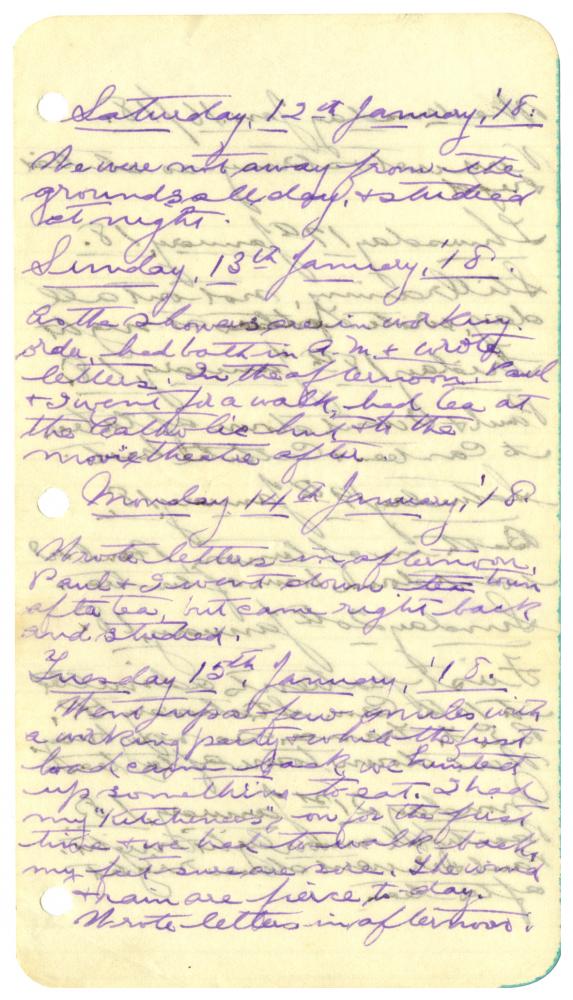 Saturday, 12th January, '18.
We were not away from the
grounds all day, & studied
at night.
Sunday, 13th January, '18.
As the showers are in working
order, had bath in A.M. & wrote
letters. In the afternoon, Paul
& I went for a walk, had tea at
the Catholic hut & to the
movie theatre after.
Monday 14th January, '18.
Wrote letters in afternoon.
Paul & I went down tea town
after tea, but came right back
and studied.
Tuesday 15th, January, '18.
Went up a few miles with
a working party & while the first
load came back we hunted
up something to eat. I had
my "Kitcheners" on for the first
time & we had to walk back,
my feet sure are sore. The wind
& rain are fierce to-day.
Wrote letters in afternoon.